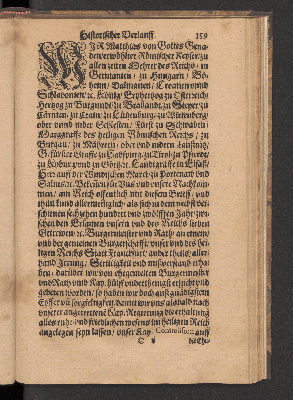 Historischer Verlauff. 159
WIR Matthias von Gottes Gena-
den erwöhlter Römischer Keyser / zu
allen zeiten Mehrer des Reichs / in
Germanien / zu Hungarn / Bö-
heim / Dalmatien / Croatien vnnd
Schlavonien / ꝛc. König / Ertzhertzog zu Osterreich /
Hertzog zu Burgundt / zu Brabandt / zu Steyer / zu
Cärnten / zu Crain / zu Lützenburg / zu Wirtenberg /
ober vnnd nider Schlesien / Fürst zu Schwaben /
Marggraffe des heiligen Römischen Reichs / zu
Burgaw / zu Mähren / ober vnd nidern Laußnitz /
G. fürster Graffe zu Habspurg / zu Tirol / zu Pfierdt /
zu Kyburg vnd zu Görtz / ꝛc. Landgraffe in Elsaß /
Herr auff der Windischen Marck / zu Portenaw vnd
Salins / ꝛc. Bekennen für Vns vnd vnsere Nachkom-
men / am Reich offentlich mit diesem Brieff / vnd
thun kund allermenniglich / als sich in dem nechst ver-
schienen sechzehen hundert vnd zwölfften Jahr / zwi-
schen den Ersamen vnsern vnd des Reichs lieben
Getrewen / ꝛc. Burgermeister vnd Rath an einem /
vnd der gemeinen Burgerschafft vnser vnd des hei-
ligen Reichs Statt Franckfurt / ander theils / aller-
hand Irrung / Strittigkeit vnd mißverstand erha-
ben / darüber wir von ehegemelten Burgermeister
vnd Rath vmb Kay. hülff vnderthenigst ersucht vnd
gebetten worden / so haben wir doch auß gnädigstem
Eyffer vñ sorgfeltigkeit / damit wir vns alsbald nach
vnserer angetrettenen Kay. Regierung die erhaltung
alles ruh- vnd friedlichen wesens im heiligen Reich
angelegen seyn lassen / vnser Kay. Commission auff
die Ehr-